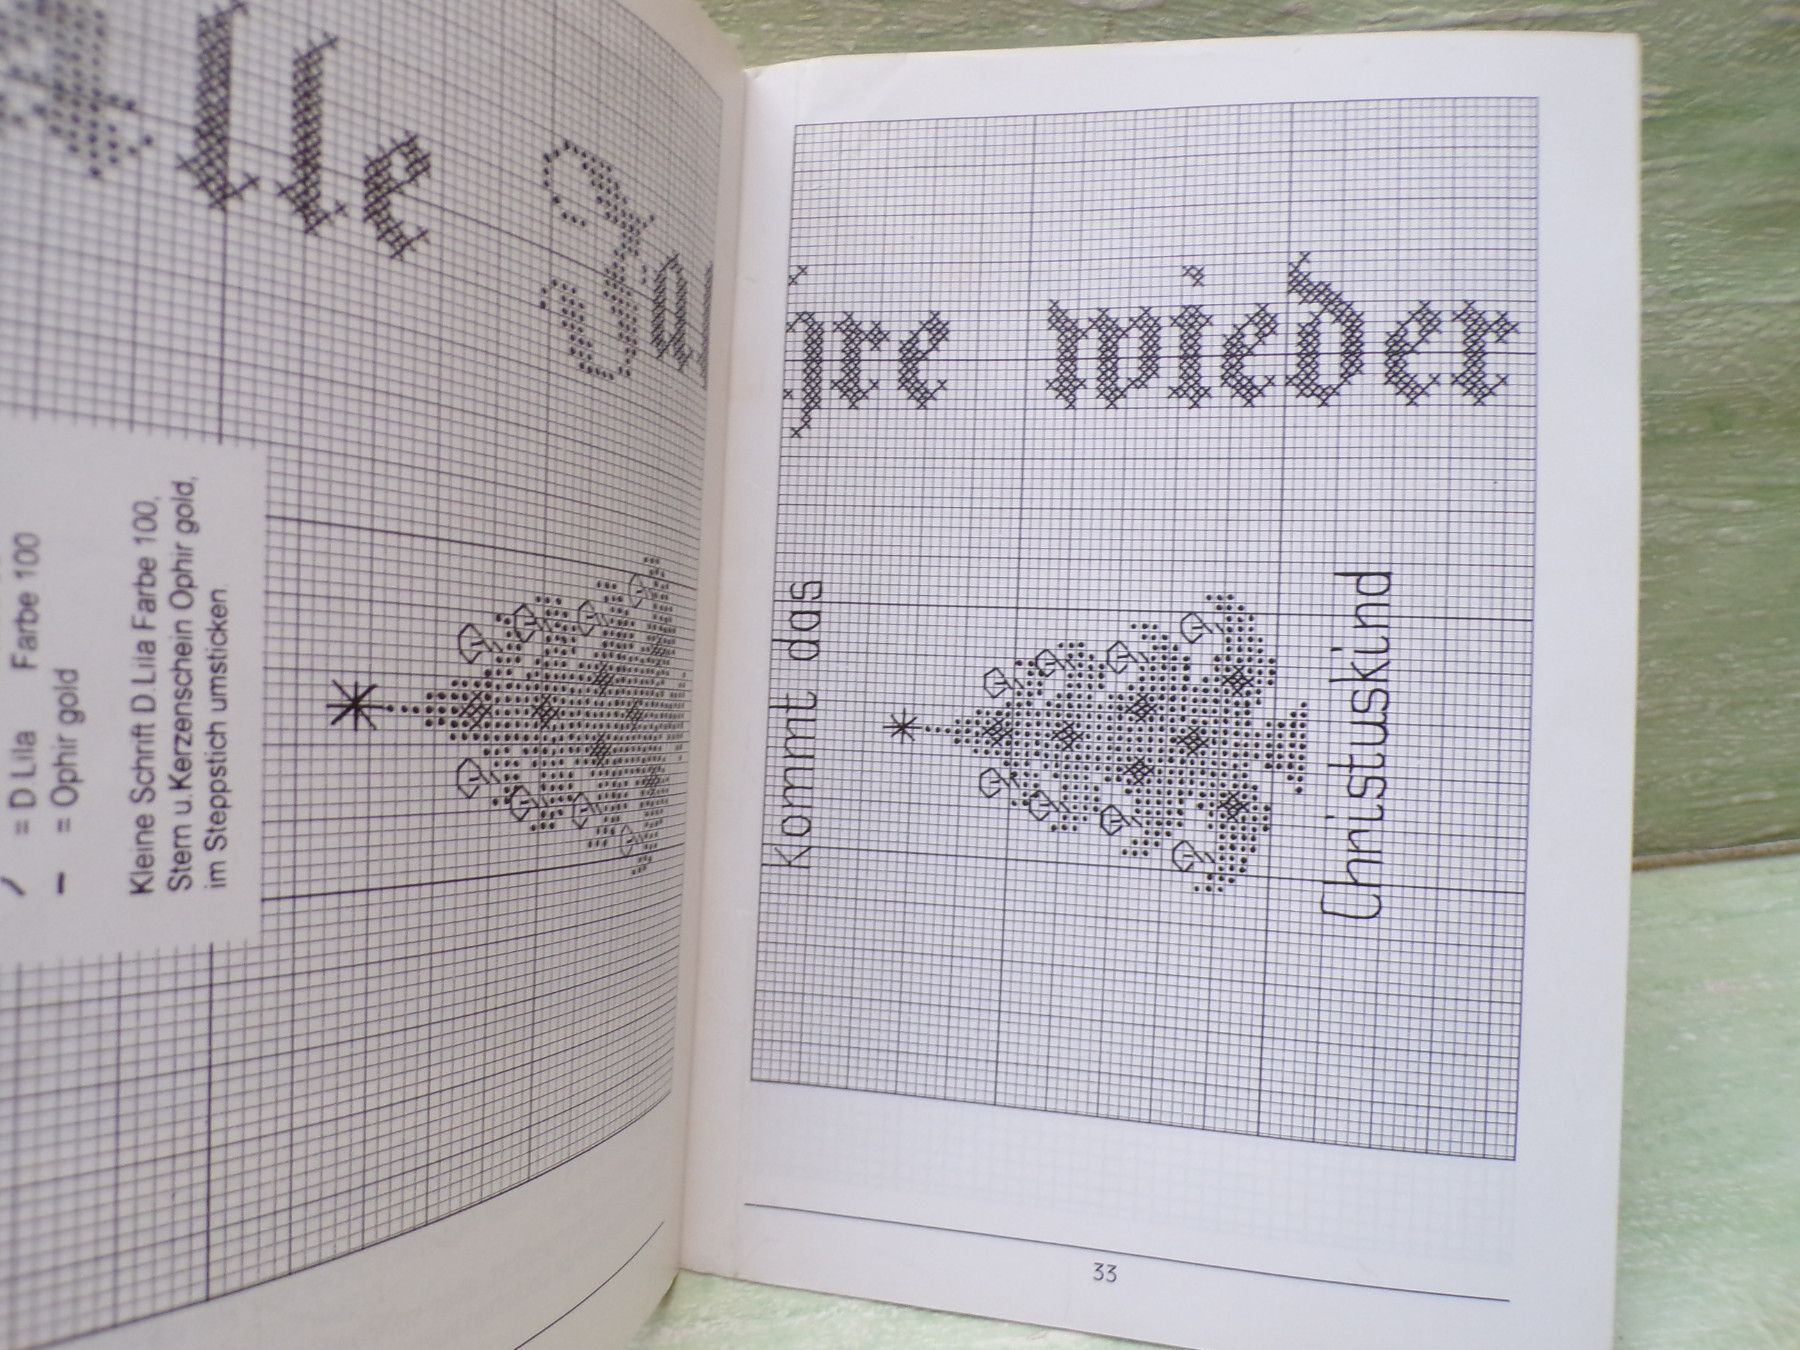 Alle Jahre wieder
/ = D.Lila Farbe 100
– = Ophir gold
Kleine Schrift D.Lila Farbe 100,
Stern u.Kerzenschein Ophir gold,
im Steppstich umsticken
Kommt das
Christuskind
33